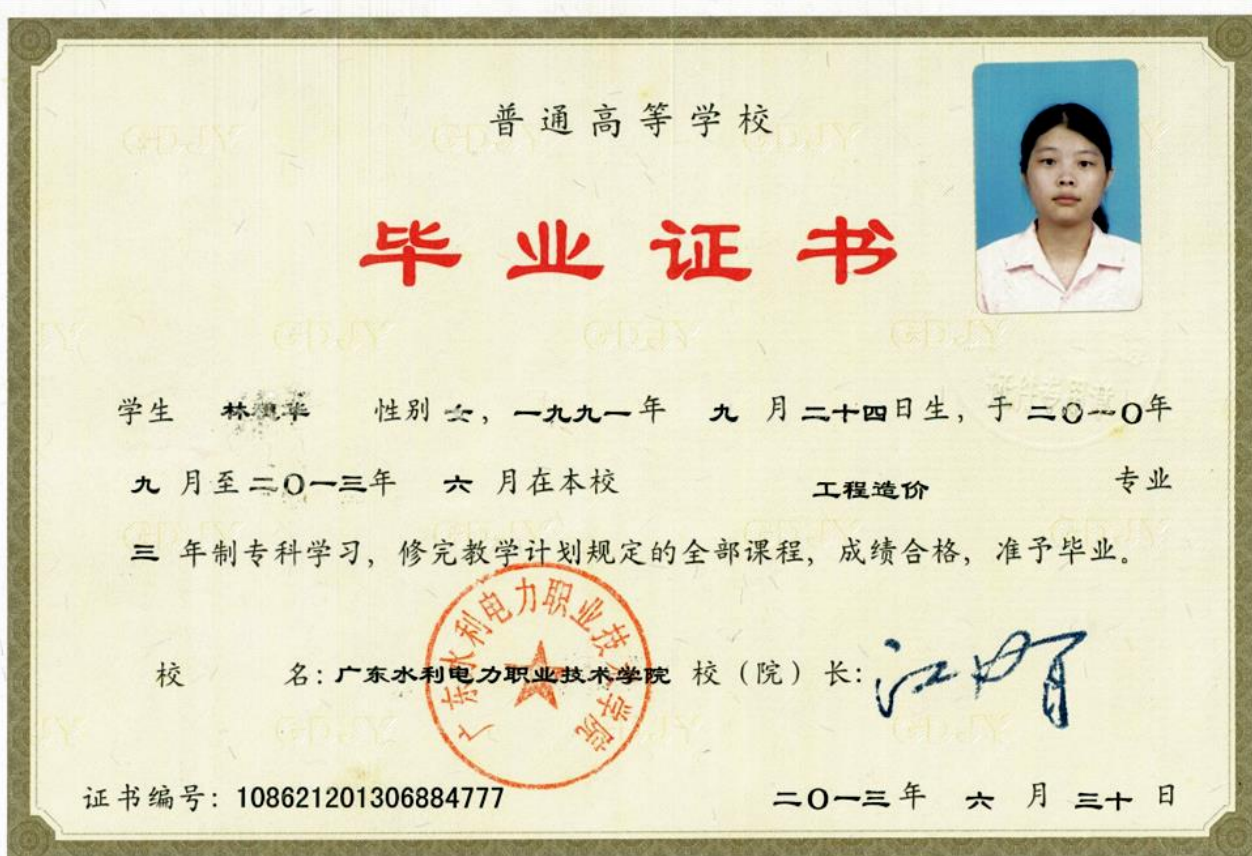 普通高等学校
毕业证书
学生 林 华 性别 女, 一九九一年 九 月二十四日生, 于 二〇一〇年
九 月至二〇一三年 六 月在本校 工程造价 专业
三 年制专科学习, 修完教学计划规定的全部课程, 成绩合格, 准予毕业。
校 名: 广东水利电力职业技术学院 校 (院) 长:
广东水利电力职业技术学院
证书编号: 108621201306884777 二〇一三年 六 月 三十 日
GDJY